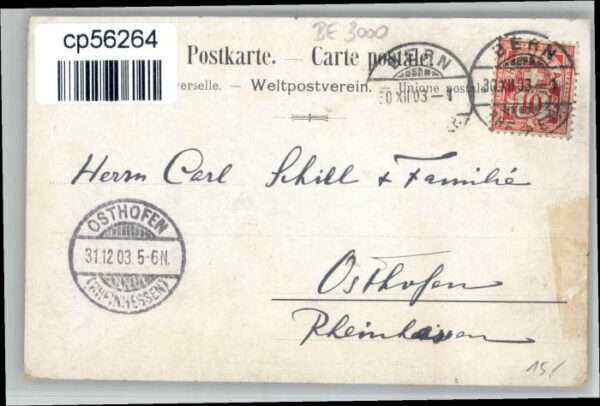 cp56264
BE 3000
Postkarte. — Carte postale.
verselle. – Weltpostverein. – Unione postale
BERN
30 XII 03 – 1
BERN
30 XII 03
10
Herrn Carl Schill & Familie
OSTHOFEN
31.12.03 5-6N.
(RHEINHESSEN)
Osthofen
Rheinhessen
15/